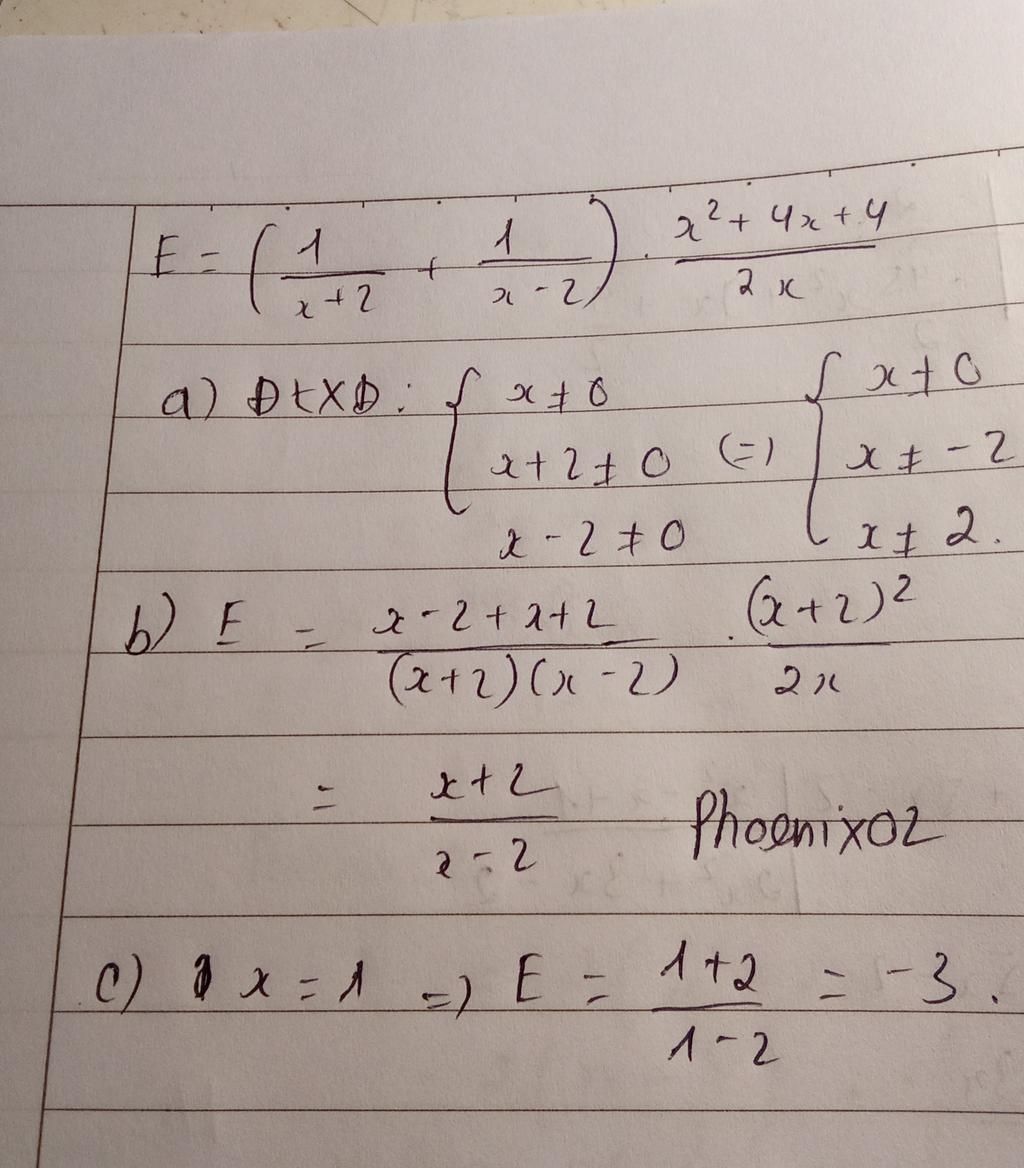 E = ( 1/(x+2) + 1/(x-2) ) . (x² + 4x + 4)/(2x)
a) ĐtXĐ : { x ≠ 0 ; x+2 ≠ 0 ; x-2 ≠ 0 (=) { x ≠ 0 ; x ≠ -2 ; x ≠ 2.
b) E = (x-2+x+2)/((x+2)(x-2)) . (x+2)²/(2x)
= (x+2)/(x-2) Phoenix02
c) x = 1 => E = (1+2)/(1-2) = -3.